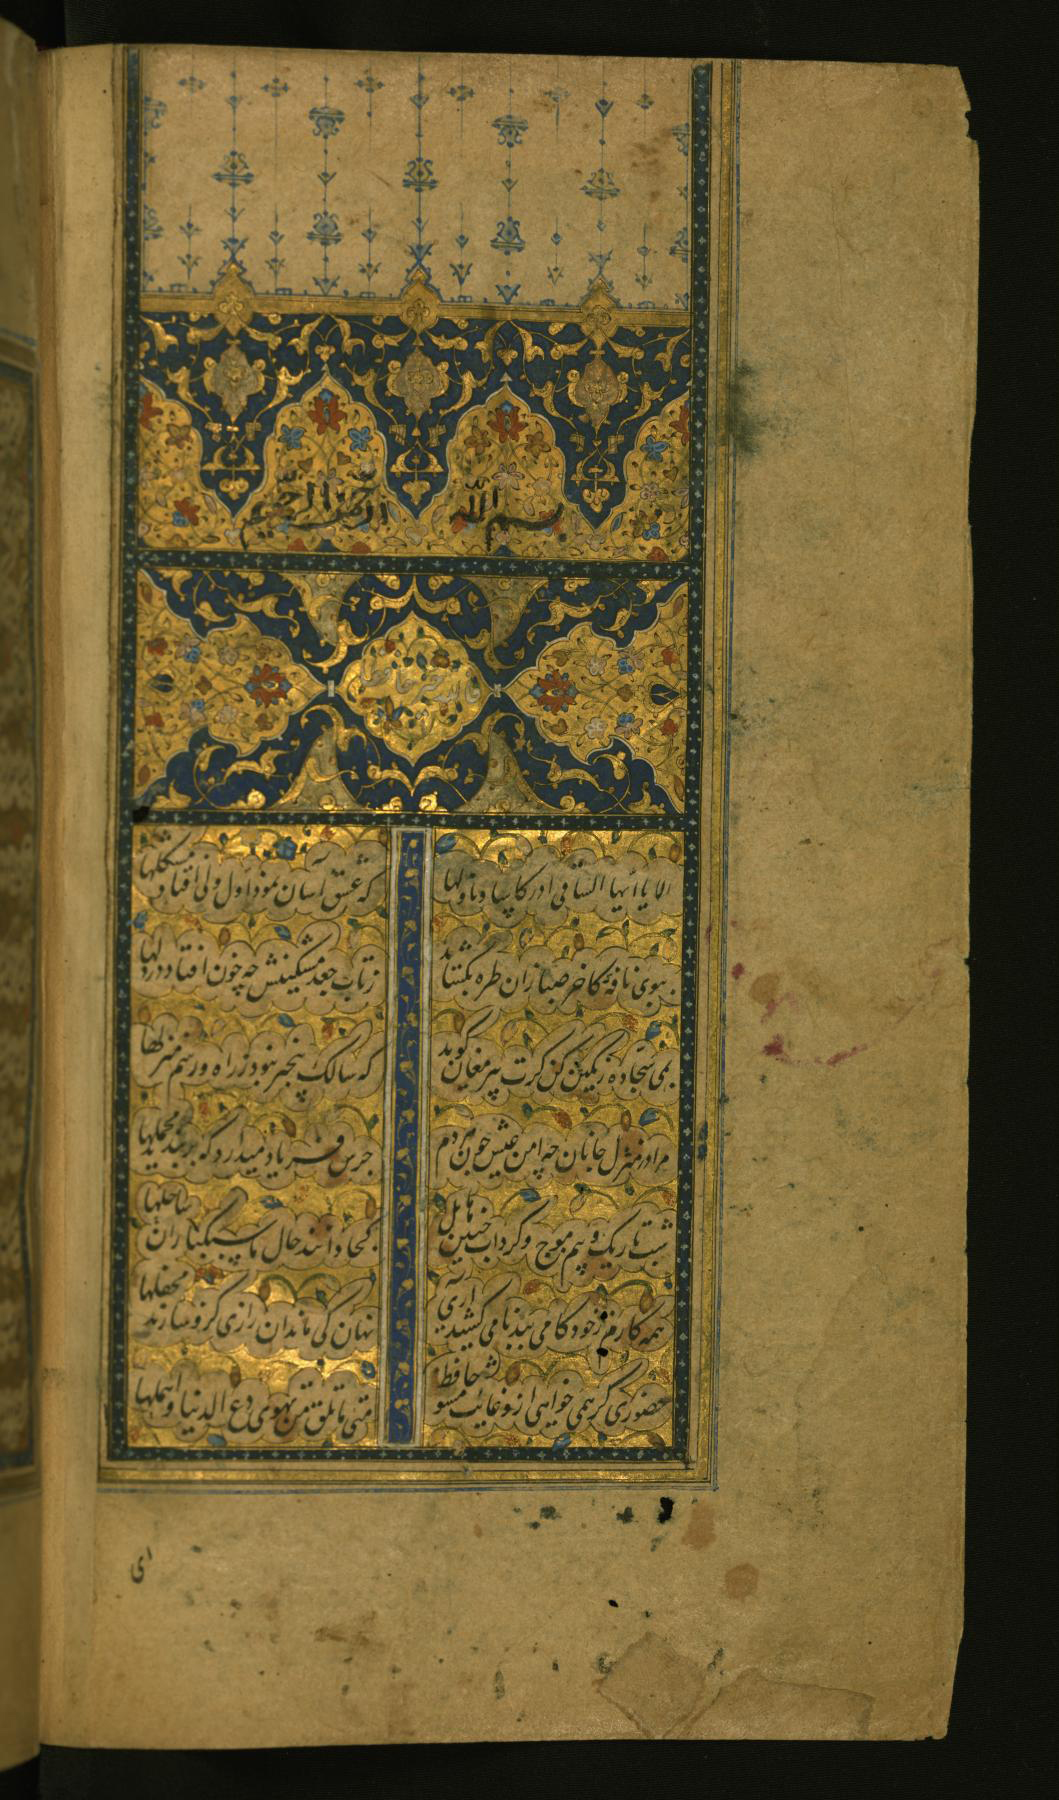 بسم الله الرحمن الرحیم
الا یا ایها الساقی ادر کاسا و ناولها
که عشق آسان نمود اول ولی افتاد مشکلها
ببوی نافه کاخر صبا زان طره بگشاید
ز تاب جعد مشکینش چه خون افتاد در دلها
بمی سجاده رنگین کن گرت پیر مغان گوید
که سالک بیخبر نبود ز راه و رسم منزلها
مرا در منزل جانان چه امن عیش چون هر دم
جرس فریاد میدارد که بربندید محملها
شب تاریک و بیم موج و گرداب چنین هایل
کجا دانند حال ما سبکباران ساحلها
همه کارم ز خود کامی ببدنامی کشید آری
نهان کی ماند آن رازی کزو سازند محفلها
حضوری گر همی خواهی ازو غایب مشو حافظ
متی ما تلق من تهوی دع الدنیا و اهملها
ای